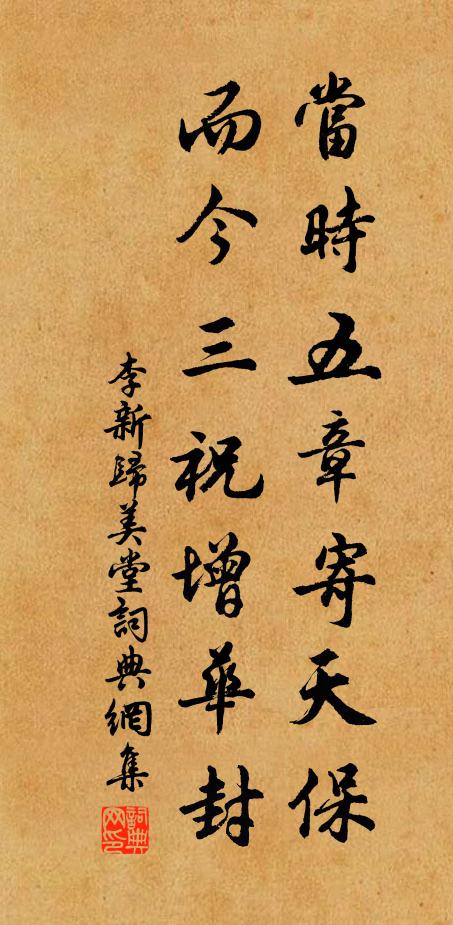 當時五章寄天保
而今三祝增華封
李新歸美堂詞典網集
詞典网印